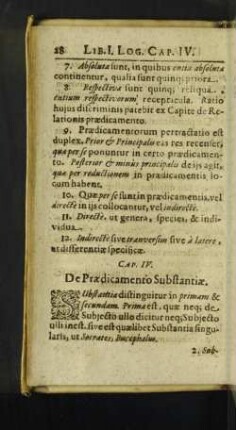 28 LIB. I. LOG. CAP. IV.
7. Absoluta sunt, in quibus entia absoluta
continentur, qualia sunt quinq; priora.
8. Respectiva sunt quinq; reliqua,
entium respectivorum receptacula. Ratio
hujus discriminis patebit ex Capite de Re-
lationis prædicamento.
9. Prædicamentorum pertractatio est
duplex, Prior & Principalio eas res recenset,
quæ per se ponuntur in certo prædicamen-
to. Posterior & minus principalis de ijs agit,
quæ per reductionem in prædicamentis lo-
cum habent.
10. Quæ per se sunt in prædicamentis, vel
directè in ijs collocantur, vel indirectè.
11. Directè, ut genera, species, & indi-
vidua.
12. Indirectè sive transversim sive à latere,
ut differentiæ specificæ.
CAP. IV.
De Prædicamento Substantiæ.
SUbstantia distinguitur in primam &
secundam. Prima est, quæ neq; de
Subjecto ullo dicitur neq; Subjecto
ulli inest, sive est quælibet Substantia singu-
laris, ut Socrates, Bucephalus.
2. Sub-